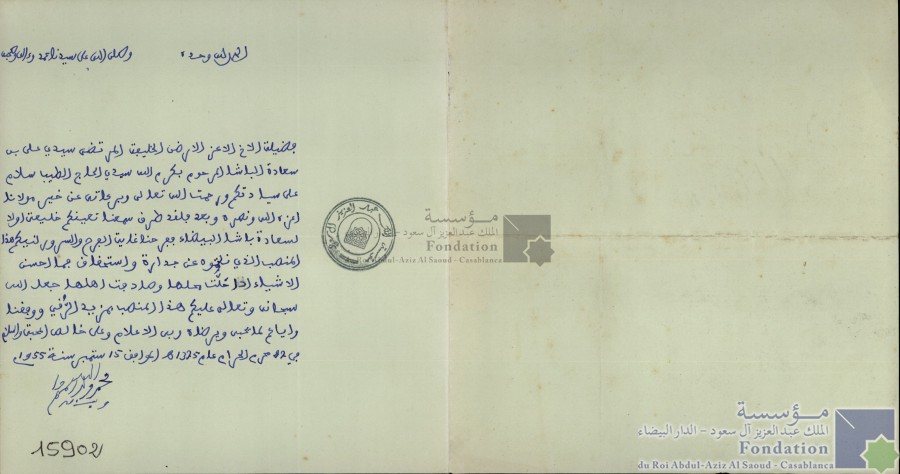 الحمد لله وحده وصلى الله على سيدنا محمد وءاله وصحبه
فضيلة الاخ الاعز الارضى الخليفة المرتضى سيدي علي بن
سعادة الباشا المرحوم بكرم الله سيدي الحاج الطيب سلام
على سيادتكم ورحمت الله تعالى وبركاته عن خير مولانا
اعزه الله ونصره وبعد فلقد طرق سمعنا تعيينكم خليفة اولا
لسعادة باشا البيضاء ففرحنا غاية الفرح والسرور لنيلكم هذا
المنصب الذي نلتموه عن جدارة واستحقاق فما احسن
الاشياء اذا حلت محلها وصادفت اهلها جعل الله
سبحانه وتعالى عليكم هذا المنصب مزيد الترقي ووفقنا
واياكم لما يحبه ويرضاه ربي الاعلام وعلى خالص المحبة والسلام
في محرم الحرام عام 1375هـ الموافق 15 ستمبر سنة 1955م
محمد
15902
مؤسسة
الملك عبد العزيز آل سعود - الدار البيضاء
Fondation
du Roi Abdul-Aziz Al Saoud - Casablanca
مؤسسة
الملك عبد العزيز آل سعود - الدار البيضاء
Fondation
du Roi Abdul-Aziz Al Saoud - Casablanca